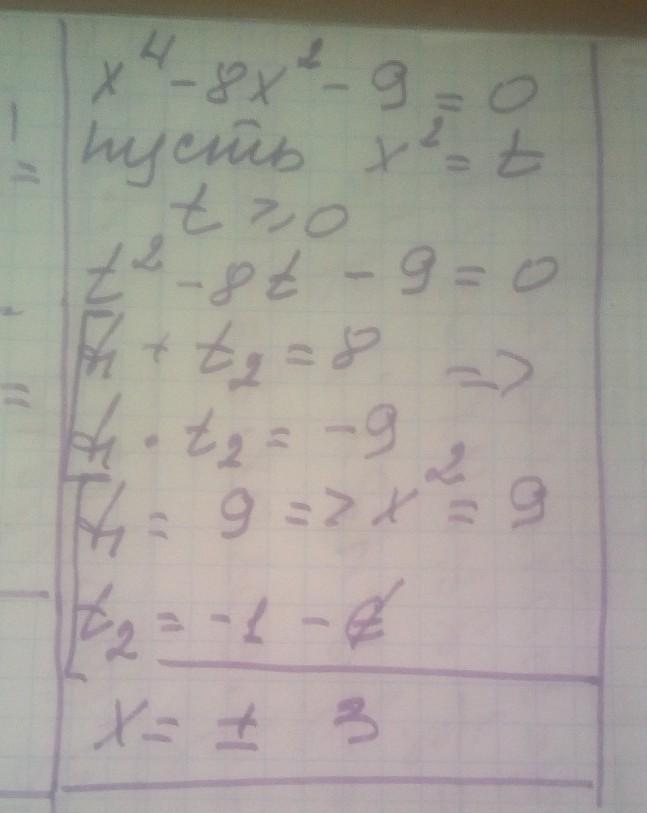 x⁴ - 8x² - 9 = 0
пусть x² = t
t ⩾ 0
t² - 8t - 9 = 0
t₁ + t₂ = 8 =>
t₁ · t₂ = -9
t₁ = 9 => x² = 9
t₂ = -1 - ∉
x = ± 3